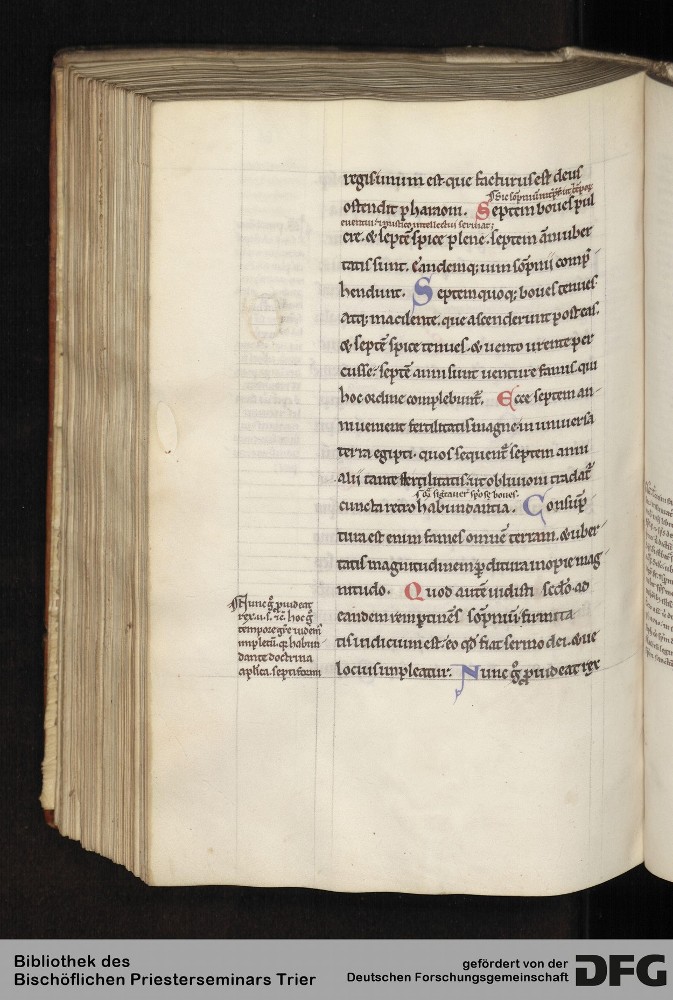 regis unum est. que facturus est deus
ostendit pharaoni. Septem boues pul
euentuū mystico intellectui seruiat;
cre. & septē spice plene. septem āni uber
tatis sunt. eandemq; uim sōpnii cōmp̄
hendunt. Septem quoq; boues tenues
atq; macilente. que ascenderunt post eas.
& septē spice tenues. & uento urente per
cusse: septē anni sunt uenture famis. qui
hoc ordine complebunt̄. Ecce septem an-
ni uenient fertilitatis magne in uniuersa
terra egipti. quos sequent̄ septem anni
alii tante sterilitatis. ut obliuioni tradat̄
cuncta retro habundantia. Consūp
tura est enim fames omnē terram. & uber-
tatis magnitudinem p̱ditura inopie mag
nitudo. Quod autē uidisti scd̄o. ad
eandem rem p̱tinēs sōpniū: firmita
tis indicium est. eo qd̄ fiat sermo dei. & ue
locius impleatur. Nunc g̊ prouideat rex
Nunc g̊ prouideat
rex. u. s. &c. hoc g̊
tempore gr̄e uidem̄
impletū. qr̄ habun
dante doctrina
ap̄lica. septiform
Bibliothek des
Bischöflichen Priesterseminars Trier
gefördert von der
Deutschen Forschungsgemeinschaft
DFG